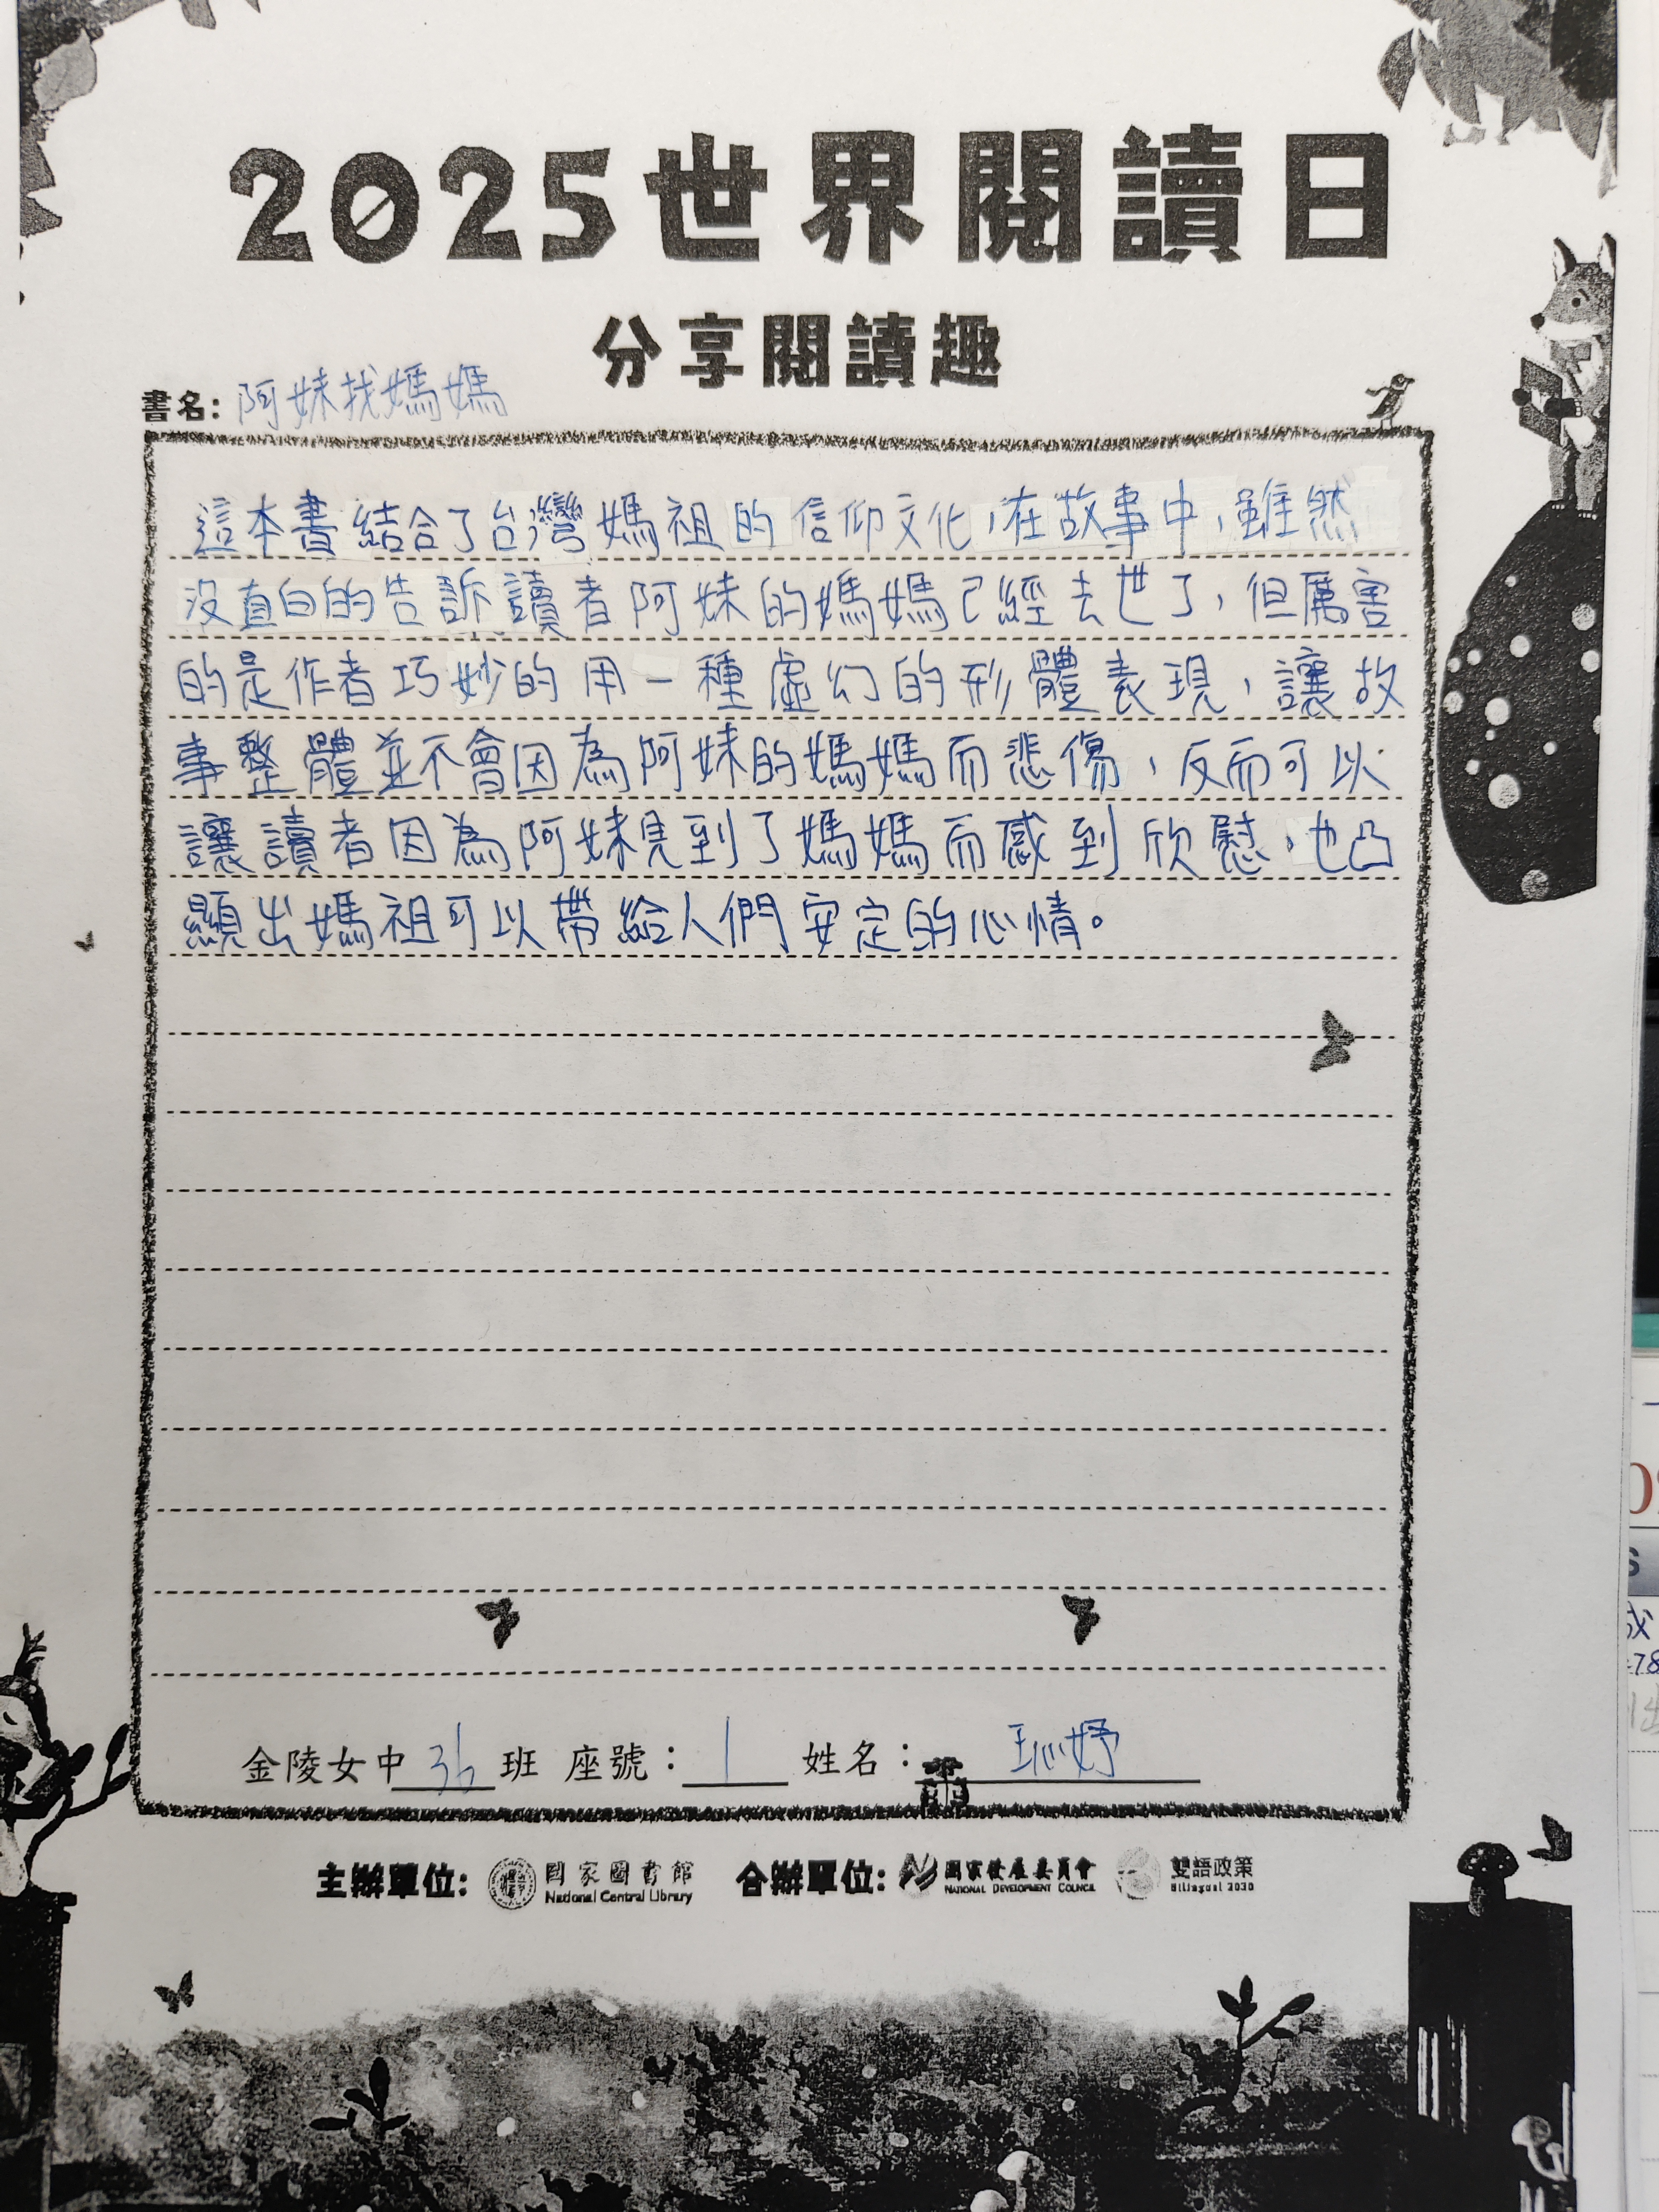 2025世界閱讀日
分享閱讀趣
書名：阿妹找媽媽
這本書結合了台灣媽祖的信仰文化，在故事中，雖然
沒直白的告訴讀者阿妹的媽媽已經去世了，但厲害
的是作者巧妙的用一種虛幻的形體表現，讓故
事整體並不會因為阿妹的媽媽而悲傷，反而可以
讓讀者因為阿妹見到了媽媽而感到欣慰，也凸
顯出媽祖可以帶給人們安定的心情。
金陵女中 班 座號：1 姓名：妤
主辦單位： 國家圖書館 National Central Library 合辦單位： 國家發展委員會 NATIONAL DEVELOPMENT COUNCIL 雙語政策 Bilingual 2030